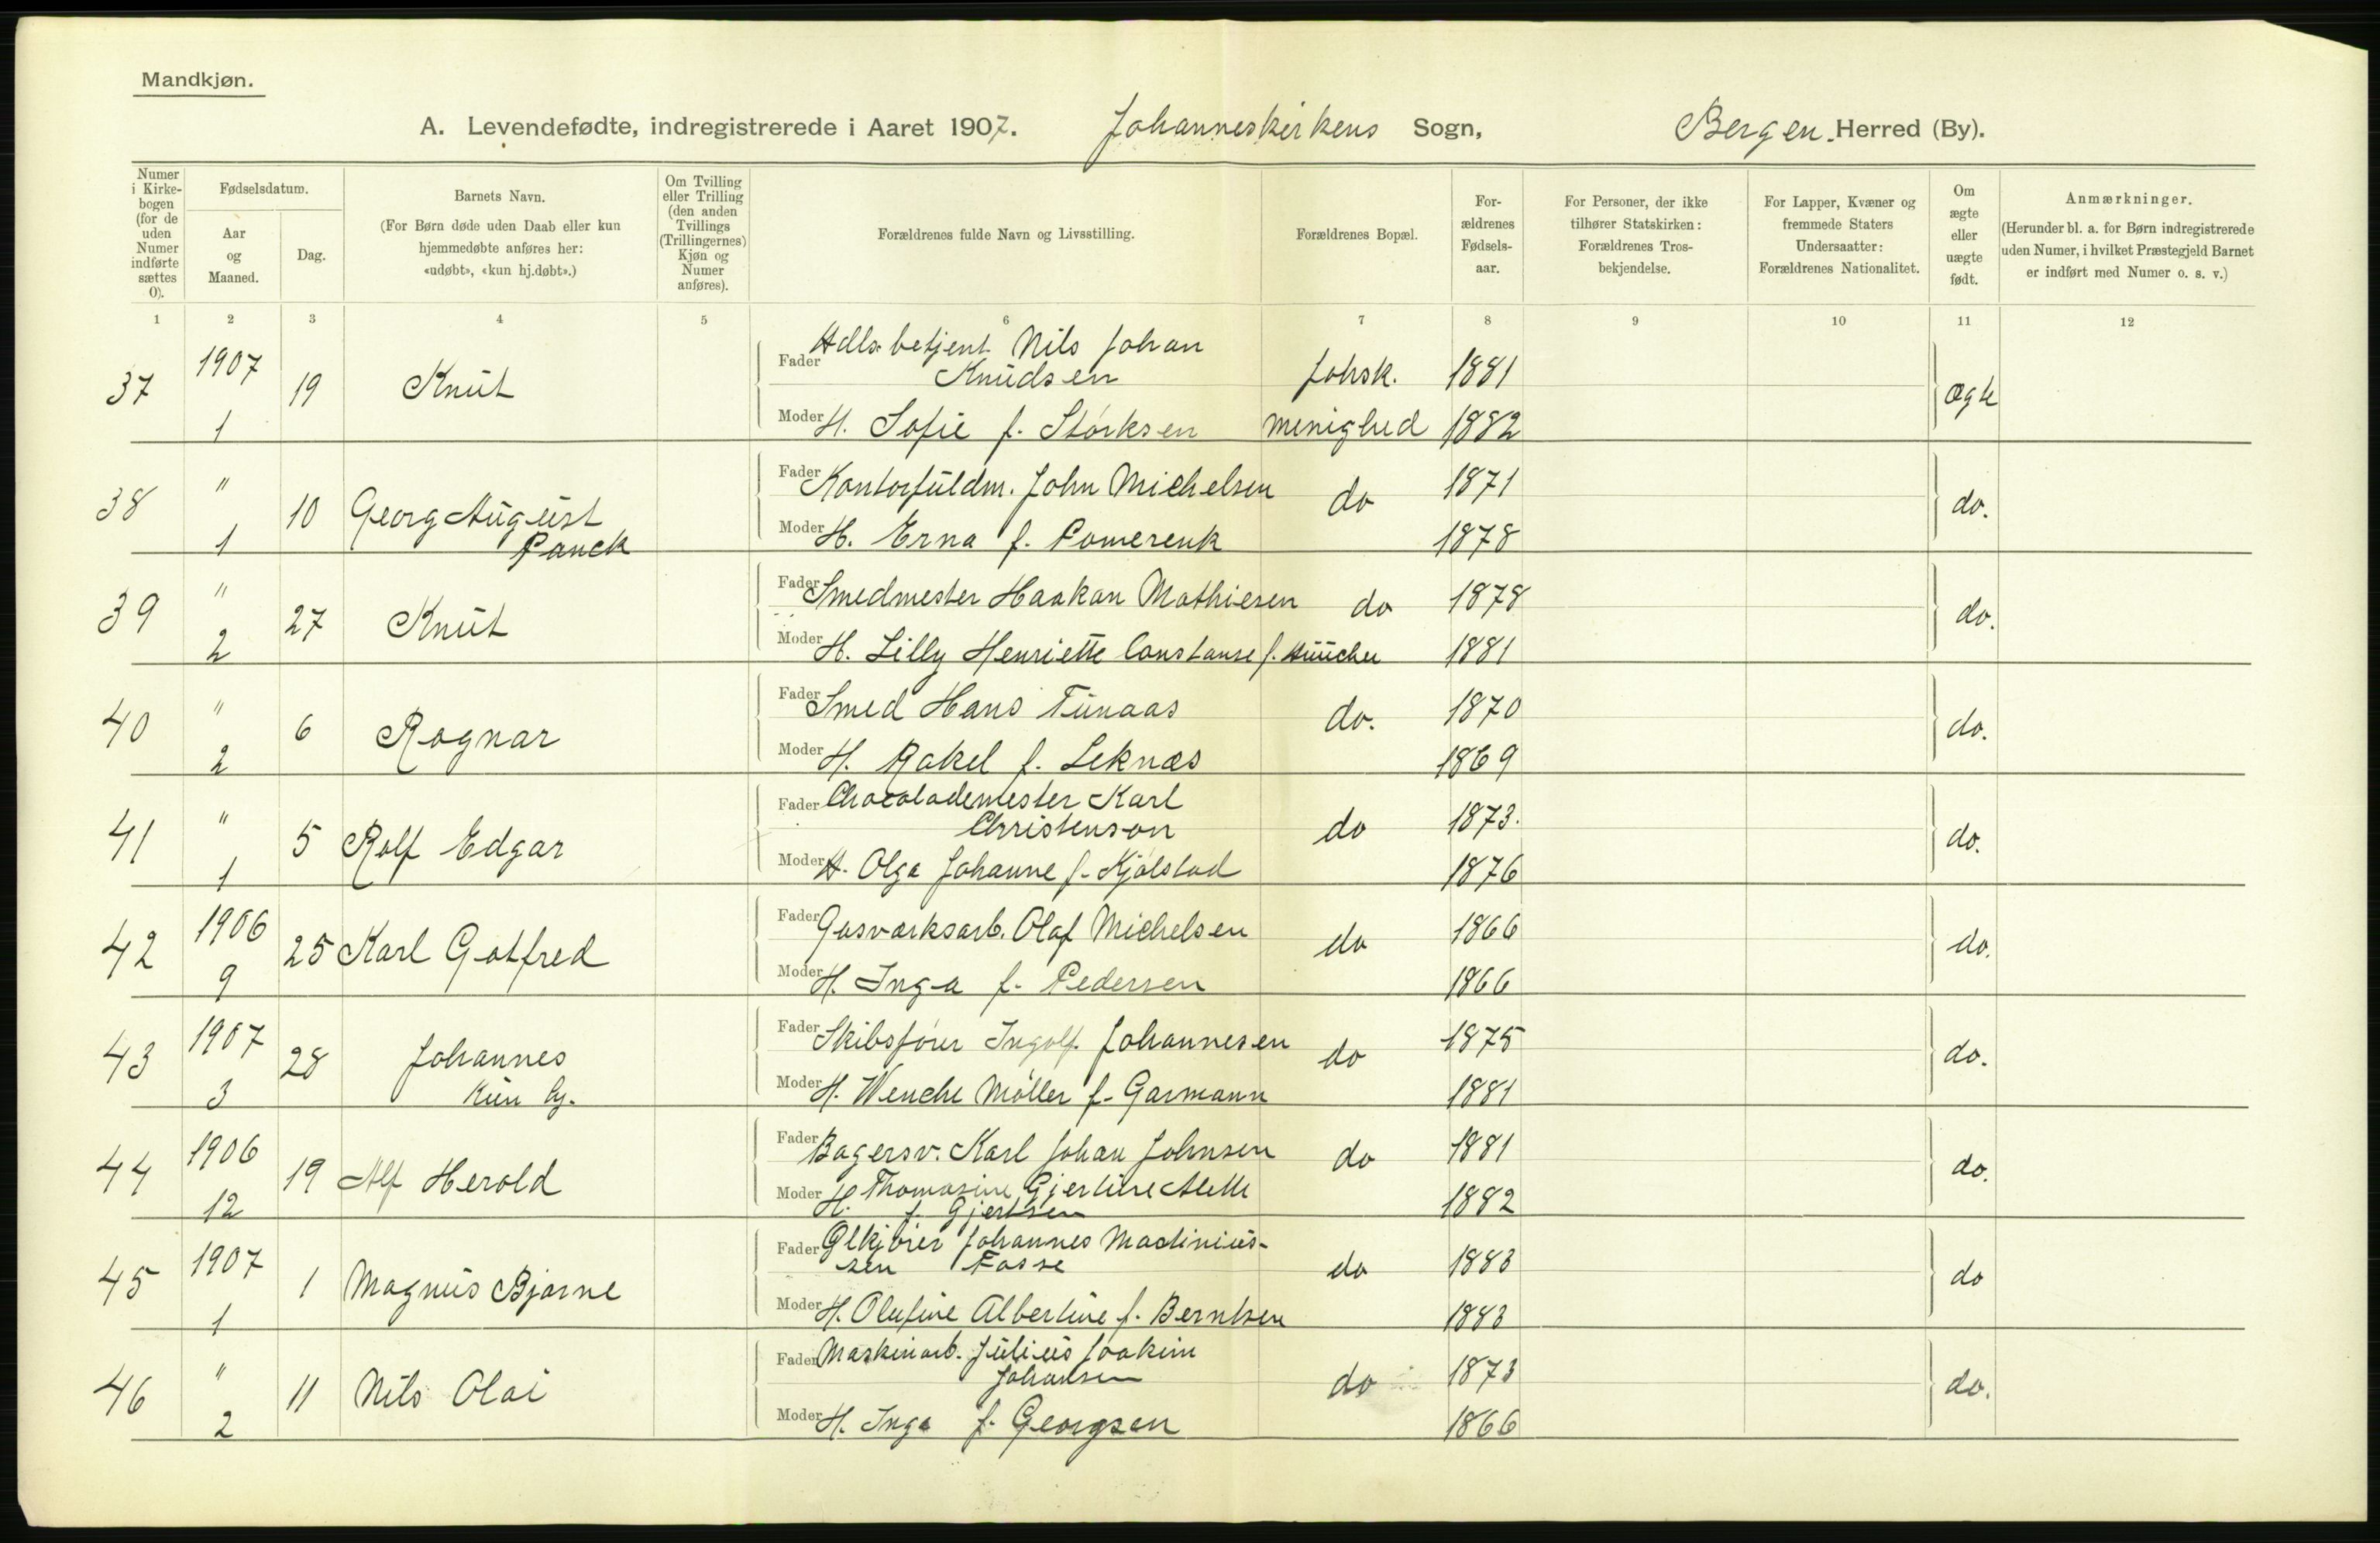 Mandkjøn.
A. Levendefødte, indregistrerede i Aaret 1907. Johanneskirkens Sogn, Bergen. Herred (By).
Numer i Kirke-bogen (for de uden Numer indførte sættes 0).
Fødselsdatum.
Aar og Maaned.
Dag.
Barnets Navn.
(For Børn døde uden Daab eller kun
hjemmedøbte anføres her:
«udøbt», «kun hj.døbt».)
Om Tvilling eller Trilling (den anden Tvillings (Trillingernes) Kjøn og Numer anføres).
Forældrenes fulde Navn og Livsstilling.
Forældrenes Bopæl.
For-ældrenes Fødsels-aar.
For Personer, der ikke
tilhører Statskirken:
Forældrenes Tros-
bekjendelse.
For Lapper, Kvæner og
fremmede Staters
Undersaatter:
Forældrenes Nationalitet.
Om ægte eller uægte født.
Anmærkninger.
(Herunder bl. a. for Børn indregistrerede
uden Numer, i hvilket Præstegjeld Barnet
er indført med Numer o. s. v.)
1 2 3 4 5 6 7 8 9 10 11 12
37 1907 1 19 Knut
Fader Hdls. betjent Nils Johan
Knudsen Johsk. 1881
Moder H. Sofie f. Størksen menighed 1882 Ægte
38 " 1 10 Georg August
Panck
Fader Kontorfuldm. John Michelsen do 1871
Moder H. Erna f. Pomerenk 1878 do.
39 " 2 27 Knut
Fader Smedmester Haakan Mathiesen do 1878
Moder H. Lilly Henriette Constanse f. 1881 do.
40 " 2 6 Ragnar
Fader Smed Hans Tunaas do. 1870
Moder H. Rakel f. Leknæs 1869 do.
41 " 1 5 Rolf Edgar
Fader Chocolademester Karl
Christenson do 1873.
Moder H. Olga Johanne f. Kjølstad 1876 do.
42 1906 9 25 Karl Gotfred
Fader Gasværksarb. Olaf Michelsen do 1866
Moder H. Inga f. Pedersen 1866 do.
43 1907 3 28 Johannes
Kun hj.
Fader Skibsfører Ingolf Johannesen do 1875
Moder H. Wenche Møller f. Garmann 1881 do.
44 1906 12 19 Alf Herold
Fader Bagersv. Karl Johan Johnsen do 1881
Moder H. Thomasine Gjertine Alette
f. Gjertsen 1882 do.
45 1907 1 1 Magnus Bjarne
Fader Ølkjører Johannes Martinius-
sen Fosse do 1883
Moder H. Olufine Albertine f. Berntsen 1883 do
46 " 2 11 Nils Olai
Fader Maskinarb. Julius Joakim
Johansen do 1873
Moder H. Inga f. Georgsen 1866 do.